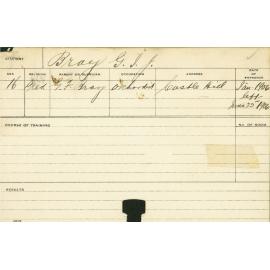 STUDENT Bray G. I. J.
AGE RELIGION PARENT OR GUARDIAN OCCUPATION ADDRESS DATE OF ENTRANCE
16 Med G. F. Bray Orchardist Castle Hill Jan 1906
left
June 25 1906
COURSE OF TRAINING NO. OF BOOK
RESULTS